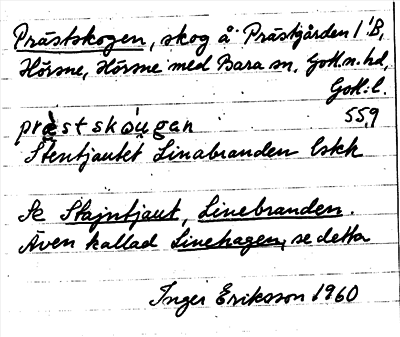 Prästskogen, skog å Prästgården 1¹B,
Hörsne, Hörsne med Bara sn, Gotl. n. hd,
Gotl. l.
559
præ̀stskóu̯gan
Stentjautet Linabranden Eskh
Se Stajntjaut, Linebranden.
Även kallad Linehagen, se detta
Inger Eriksson 1960